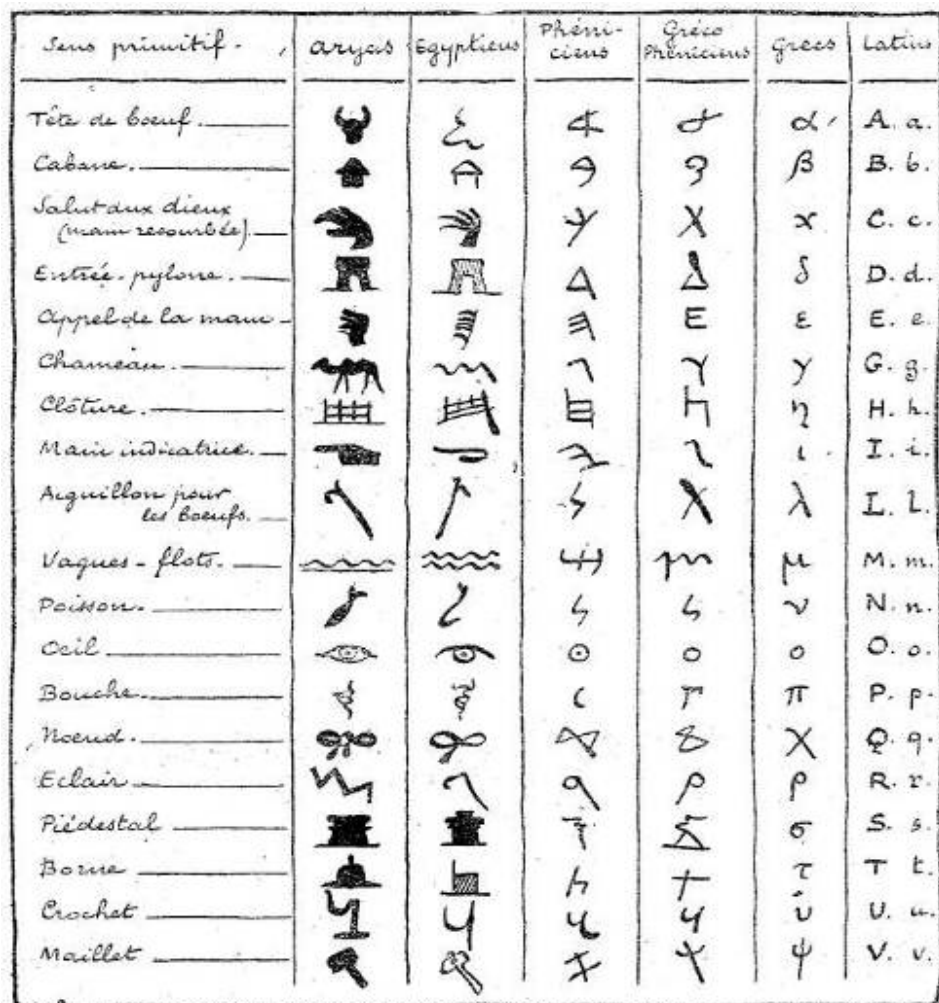 Sens primitif - aryas Egyptiens Phéni-ciens Gréco Phéniciens grecs Latins
Tête de bœuf. α A. a.
Cabane. β B. b.
Salut aux dieux
(main recourbée). ϰ C. c.
Entrée-pylone. δ D. d.
Appel de la main - E ε E. e.
Chameau. γ G. g.
Clôture. η H. h.
Main indicatrice. ι I. i.
Aiguillon pour
les bœufs. λ L. l.
Vagues - flots. μ M. m.
Poisson. ν N. n.
Oeil ο O. o.
Bouche. π P. p.
Nœud. χ Q. q.
Eclair ρ R. r.
Piédestal σ S. s.
Borne τ T t.
Crochet υ U. u.
Maillet ψ V. v.